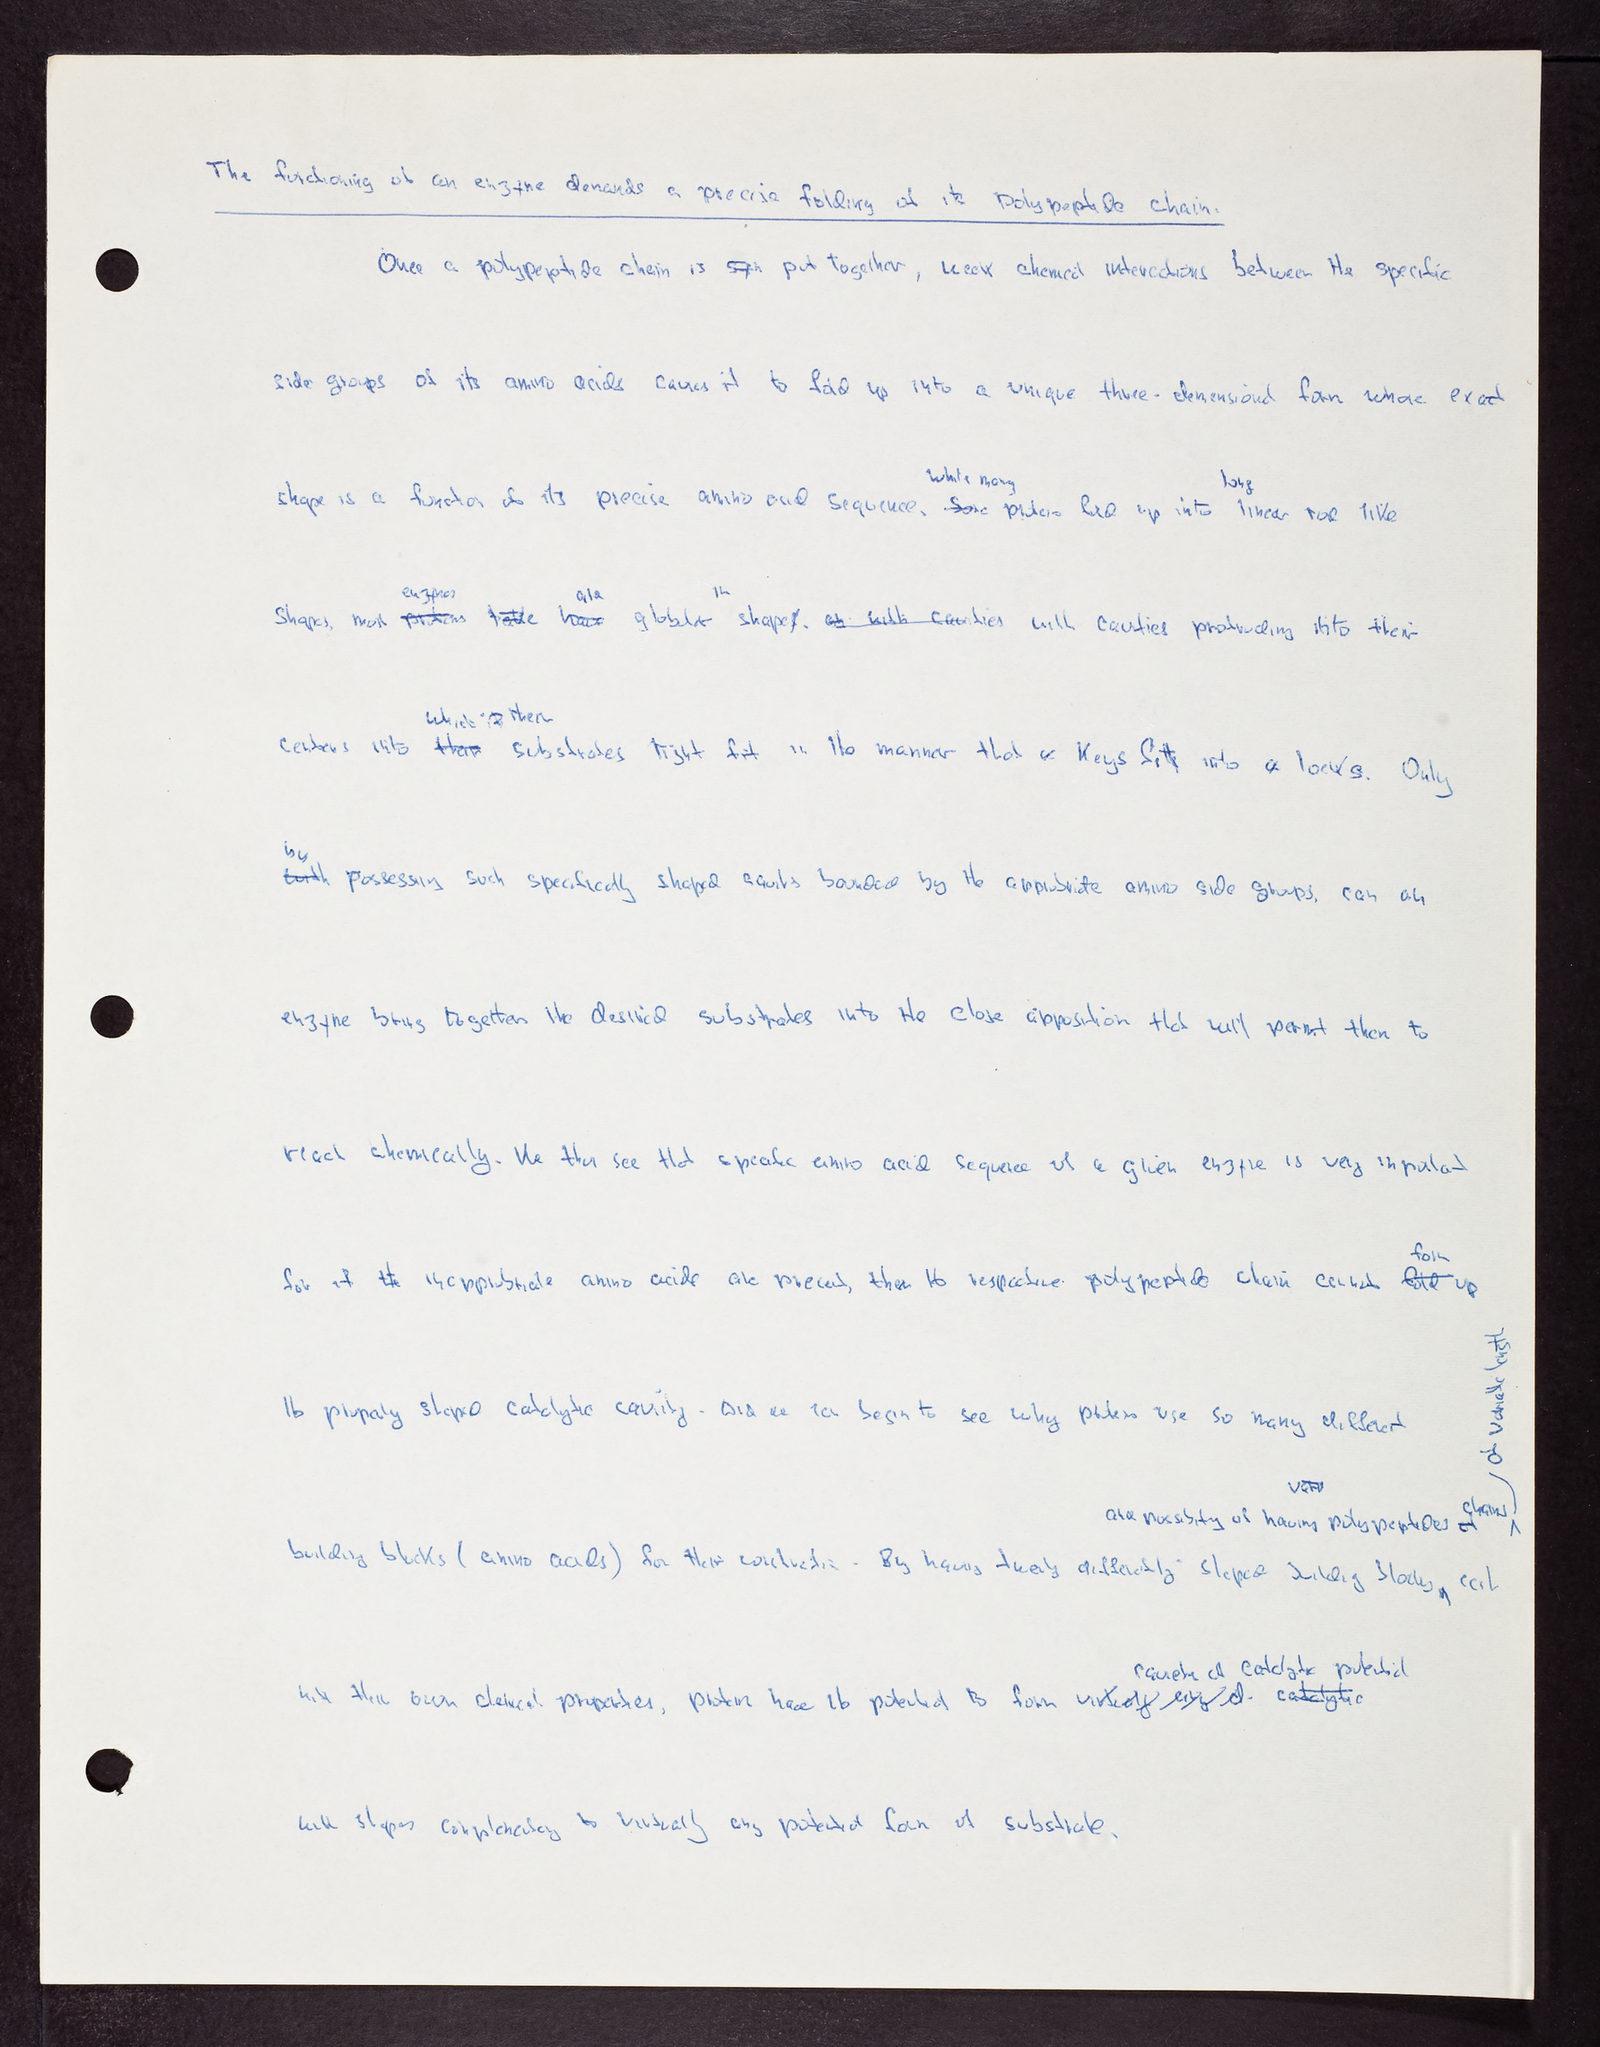 The functioning of an enzyme demands a precise folding of its polypeptide chain.
Once a polypeptide chain is put together, weak chemical interactions between the specific
side groups of its amino acids causes it to fold up into a unique three-dimensional form whose exact
while many long
shape is a function of its precise amino acid sequence. Some proteins fold up into linear rod like
enzymes are in
shapes, most proteins have globular shapes. as with cavities with cavities protruding into their
which their
centers into their substrates tight fit in the manner that a keys fit into a locks. Only
by
with possessing such specifically shaped cavities bounded by the appropriate amino side groups, can an
enzyme bring together the desired substrates into the close apposition that will permit them to
react chemically. We thus see that specific amino acid sequence of a given enzyme is very important
form
for if the inappropriate amino acids are present, then the respective polypeptide chain cannot fold up
of variable length
the properly shaped catalytic cavity. And we can begin to see why proteins use so many different
and possibility of having polypeptides chains
building blocks (amino acids) for their construction. By having twenty differently shaped building blocks, each
cavities of catalytic potential
with their own chemical properties, proteins have the potential to form virtually any of catalytic
with shapes complementary to virtually any potential form of substrate.